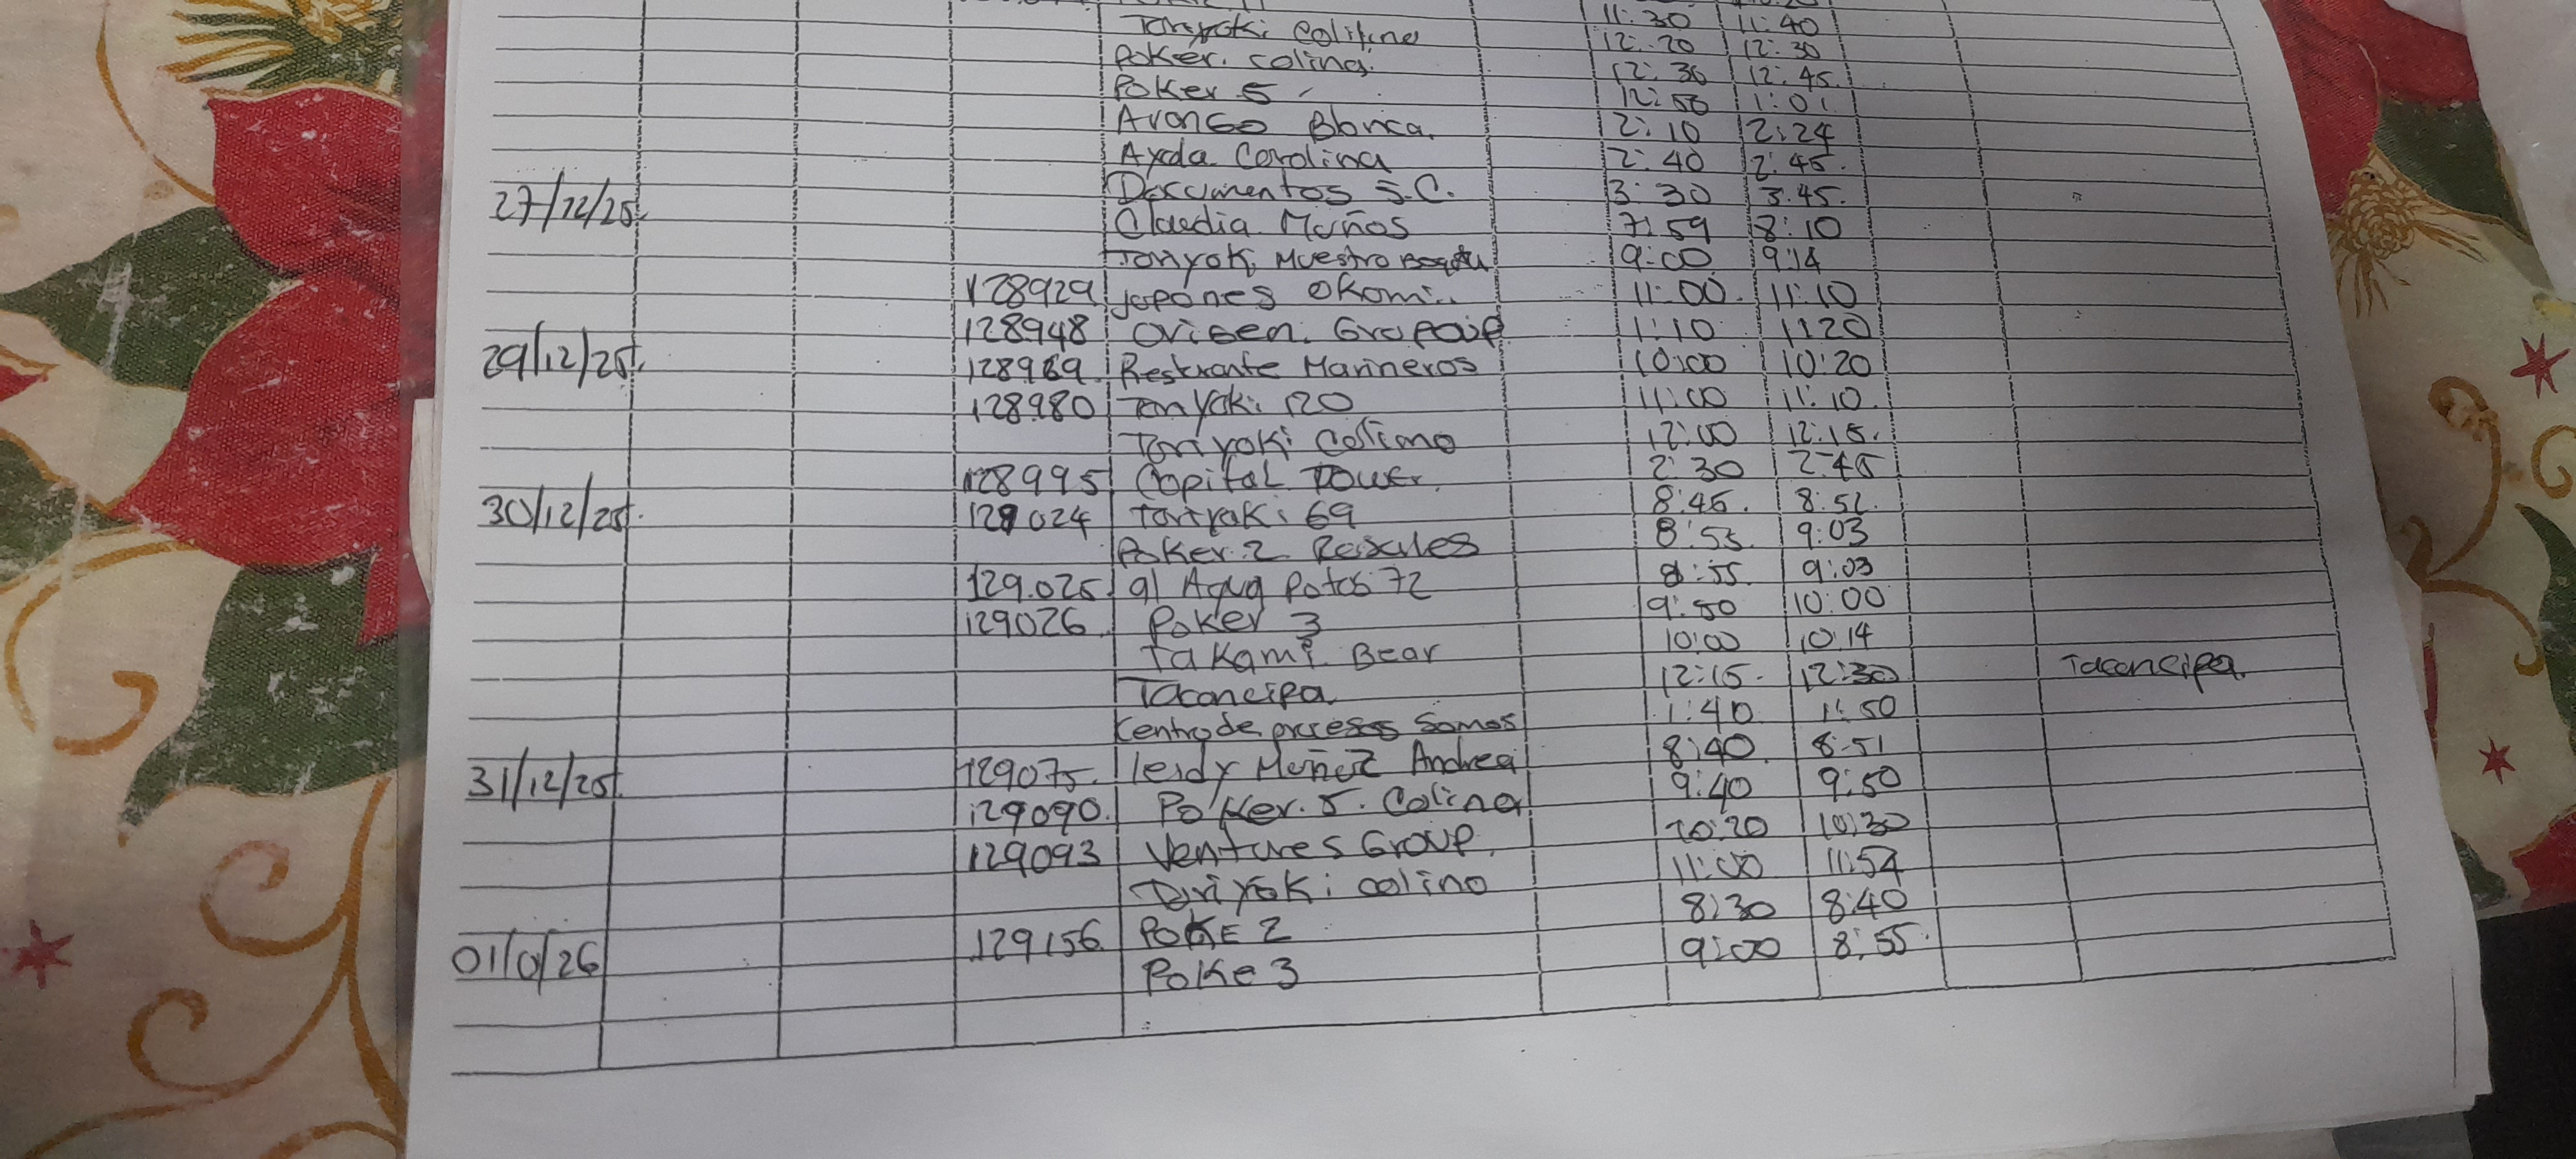 Toriyaki Colina 11:30 11:40
Poker. colina. 12:20 12:30
Poker 5 12:30 12:45.
Blanca. 12:50 1:01
Ayda Carolina 2:10 2:24
Documentos S.C. 2:40 2:45.
27/12/25 Claudia Muños 3:30 3:45.
Toriyaki Muestro 7:59 8:10
128929 japones Okomi.. 9:00 9:14
128948 11:00. 11:10
29/12/25 128969. Marineros 1:10 1:20
128980 Toriyaki 120 10:00 10:20
Toriyaki Colina 11:00 11:10.
128995 Capital Tower. 12:00 12:15.
30/12/25 129024 Toriyaki 69 2:30 2:45
Poker 2 Rosales 8:45. 8:52.
129.025 91 Agua Potos 72 8:53 9:03
129026 Poker 3 8:55. 9:03
Takami Bear 9:50 10:00
Tocancipa 10:00 10:14
Centro de procesos Somos 12:15. 12:30 Tocancipa
31/12/25 129075. leidy Muñoz Andrea 1:40 1:50
129090. Poker. 5. Colina 8:40 8:51
129093 Ventures Group. 9:40 9:50
Toriyaki colina 10:20 10:30
01/0/26 129156 POKE 2 11:00 11:54
Poke 3 8:30 8:40
9:00 8:55.